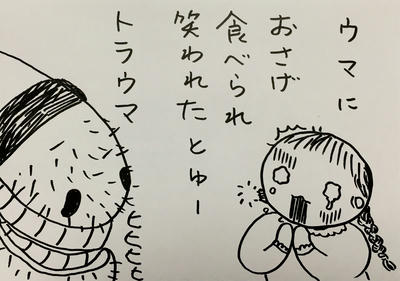 ウマに
おさげ
食べられ
笑われたとゅー
トラウマ
ヒヒヒヒ